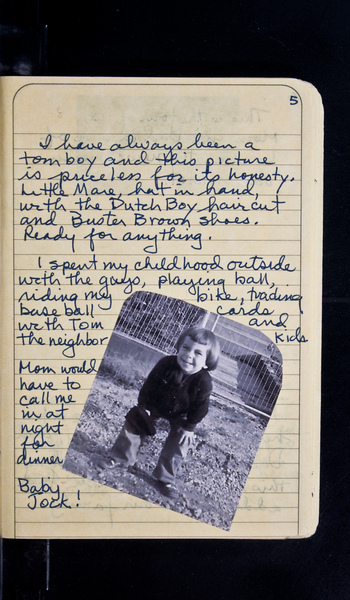 5
I have always been a
tomboy and this picture
is priceless for its honesty.
Little Mare, hat in hand,
with the Dutch Boy haircut
and Buster Brown shoes.
Ready for anything.
I spent my childhood outside
with the guys, playing ball,
riding my bike, trading
baseball cards
with Tom and
the neighbor kids
Mom would
have to
call me
in at
night
for
dinner
Baby
Jock!